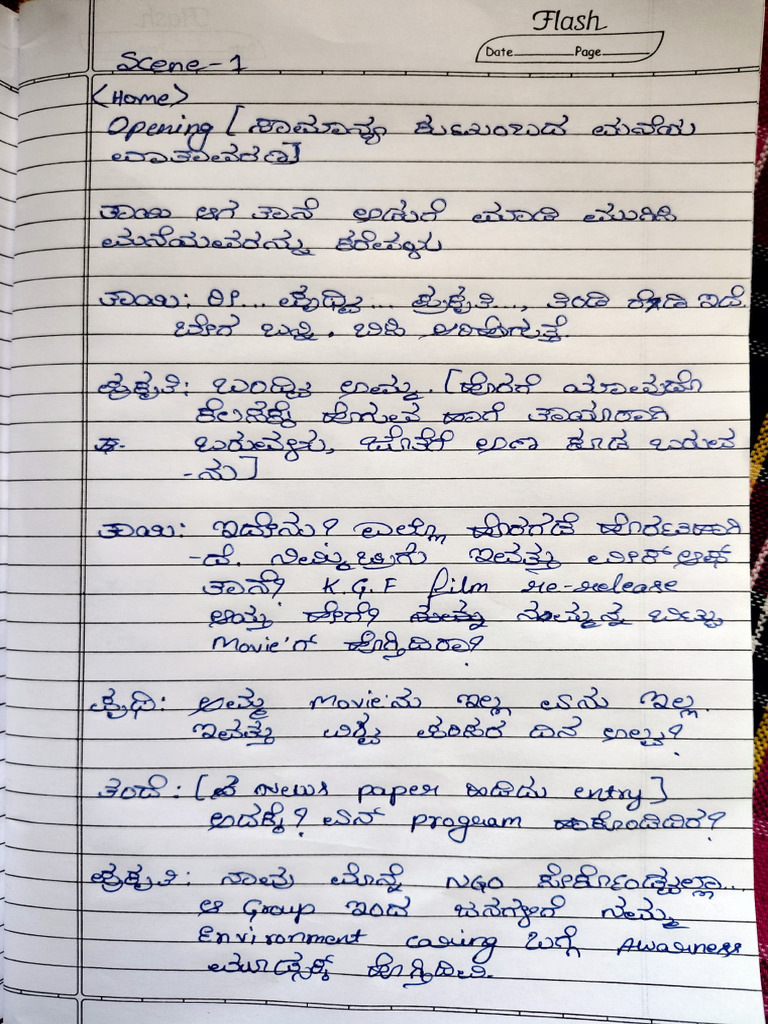 Flash
Date Page
Scene-1
<Home>
Opening [ಸಾಮಾನ್ಯ ಕುಟುಂಬದ ಮನೆಯ
ವಾತಾವರಣ]
ತಾಯಿ ಆಗ ತಾನೆ ಅಡುಗೆ ಮಾಡಿ ಮುಗಿಸಿ
ಮನೆಯವರನ್ನು ಕರೆಯಲು
ತಾಯಿ: ರೀ... ಪೃಥ್ವಿ... ಪ್ರಕೃತಿ..., ತಿಂಡಿ ರೆಡಿ ಇದೆ.
ಬೇಗ ಬನ್ನಿ. ಬಿಸಿ ಆರಿಹೋಗುತ್ತೆ.
ಪ್ರಕೃತಿ: ಬಂದ್ವಿ ಅಮ್ಮ. [ಹೊರಗೆ ಯಾವುದೋ
ಕೆಲಸಕ್ಕೆ ಹೋಗುವ ಹಾಗೆ ತಾಯಾರಾಗಿ
ಬರುವಳು, ಜೊತೆಗೆ ಅಣ್ಣ ಕೂಡ ಬರುವ
-ನು]
ತಾಯಿ: ಇದೇನು? ಎಲ್ಲೋ ಹೊರಗಡೆ ಹೊರಟಿಹಾಗಿ
-ದೆ. ನಿಮ್ಮಿಬ್ಬರಿಗು ಇವತ್ತು ವೀಕ್ ಆಫ್
ತಾನೆ? K.G.F film re-release
ಆಯ್ತು ಹೇಗೆ? ನಮ್ಮನ್ನ ಬಿಟ್ಟು
Movie'ಗೆ ಹೋಗ್ತಿದಿರಾ?
ಪೃಥ್ವಿ: ಅಮ್ಮ Movie'ನು ಇಲ್ಲ ಏನು ಇಲ್ಲ.
ಇವತ್ತು ವಿಶ್ವ ಪರಿಸರ ದಿನ ಅಲ್ವಾ?
ತಂದೆ: [News paper ಹಿಡಿದು entry]
ಅದಕ್ಕೆ? ಏನ್ program ಹಾಕೊಂಡಿದಿರ?
ಪ್ರಕೃತಿ: ನಾವು ಮೊನ್ನೆ NGO ಸೇರ್ಕೊಂಡ್ವಲ್ಲಾ...
ಆ Group ಇಂದ ಜನಗಳಿಗೆ ನಮ್ಮ
Environment caring ಬಗ್ಗೆ Awarness
ಮೂಡ್ಸಕ್ಕೆ ಹೋಗ್ತಿದೀವಿ.